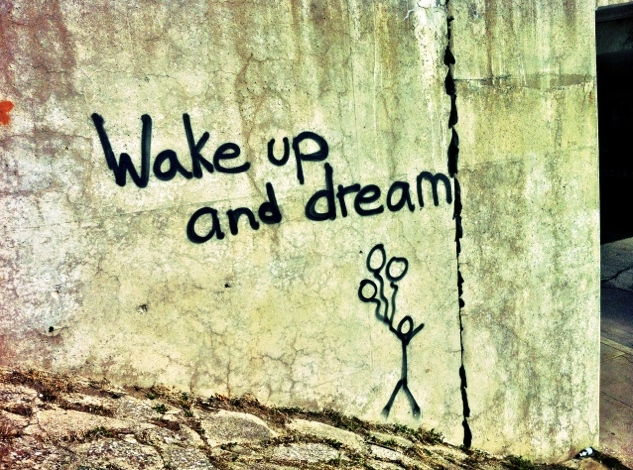 Wake up
and dream